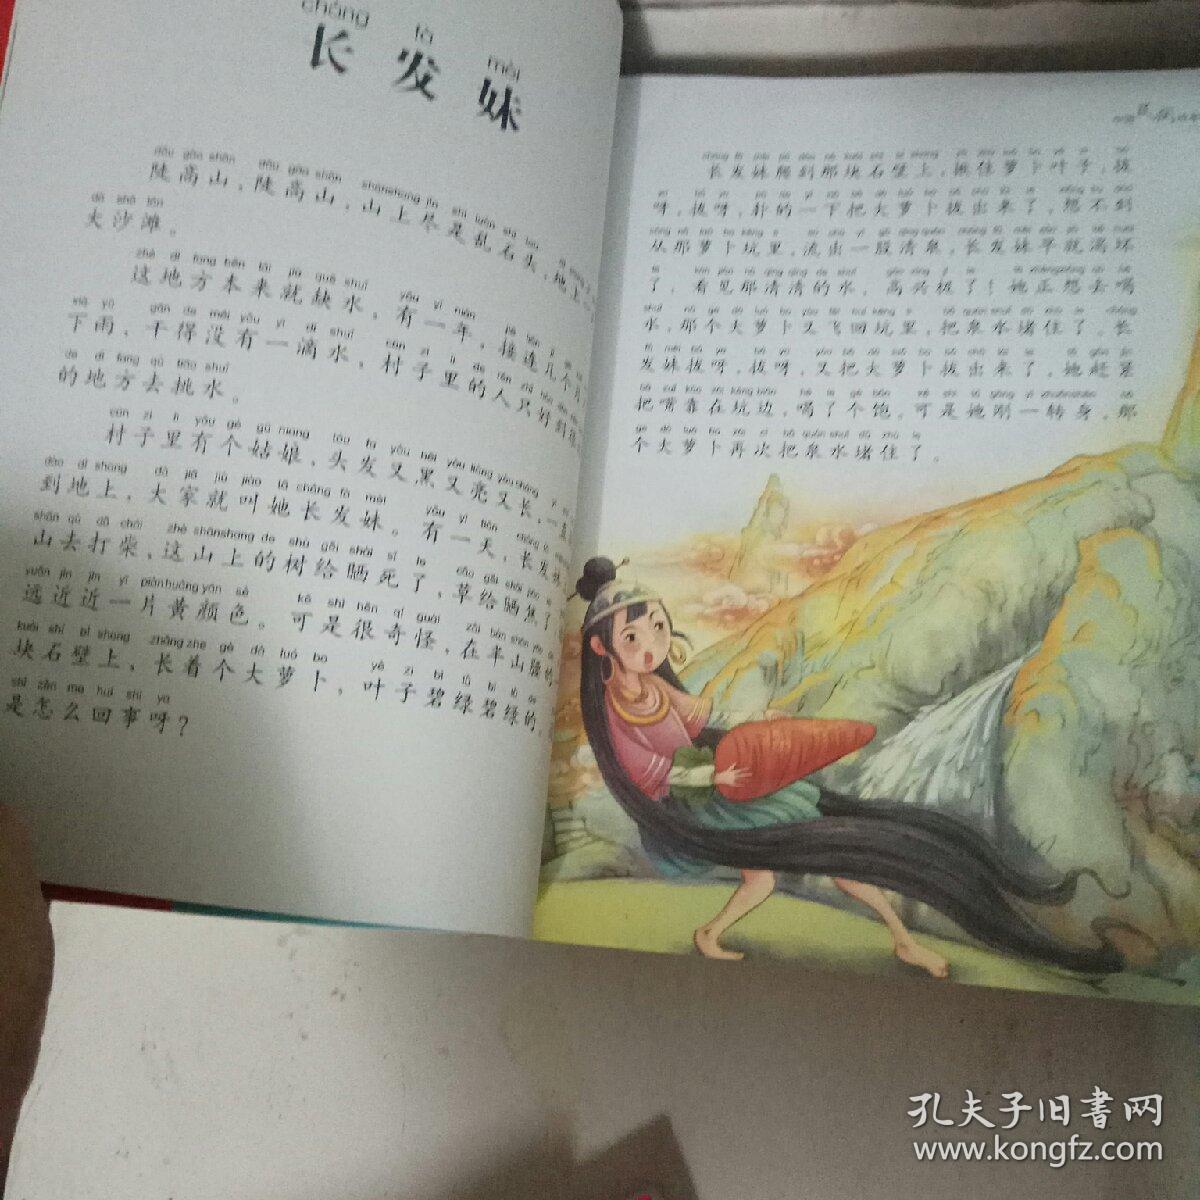 长发妹
陡高山，陡高山，山上尽是乱石头，地上
大沙滩。
这地方本来就缺水，有一年，接连几个月
下雨，干得没有一滴水，村子里的人只好到
的地方去挑水。
村子里有个姑娘，头发又黑又亮又长，一直
到地上，大家就叫她长发妹。有一天，长发妹
山去打柴，这山上的树给晒死了，草给晒焦了
远近近一片黄颜色。可是很奇怪，在半山腰的
块石壁上，长着个大萝卜，叶子碧绿碧绿的，
是怎么回事呀？
长发妹爬到那块石壁上，揪住萝卜叶子，拔
呀，拔呀，扑的一下把大萝卜拔出来了，想不到
从那萝卜坑里，流出一股清泉，长发妹早就渴坏
了，看见那清清的水，高兴极了！她正想去喝
水，那个大萝卜又飞回坑里，把泉水堵住了。长
发妹拔呀，拔呀，又把大萝卜拔出来了，她赶紧
把嘴靠在坑边，喝了个饱，可是她刚一转身，那
个大萝卜再次把泉水堵住了。
孔夫子旧書网
www.kongfz.com